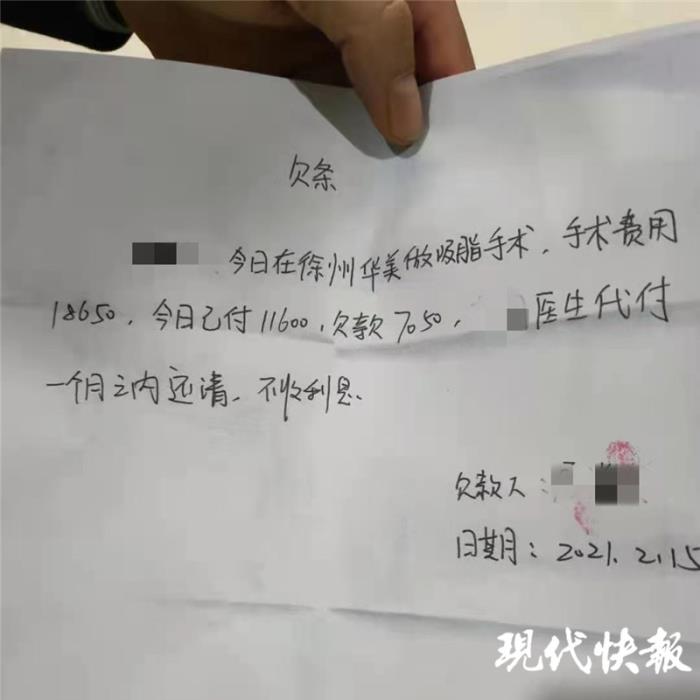 欠条
今日在徐州华美做吸脂手术，手术费用
18650，今日已付11600，欠款7050，医生代付
一个月之内还清，不收利息、
欠款人：
日期：2021.2.15
現代快報